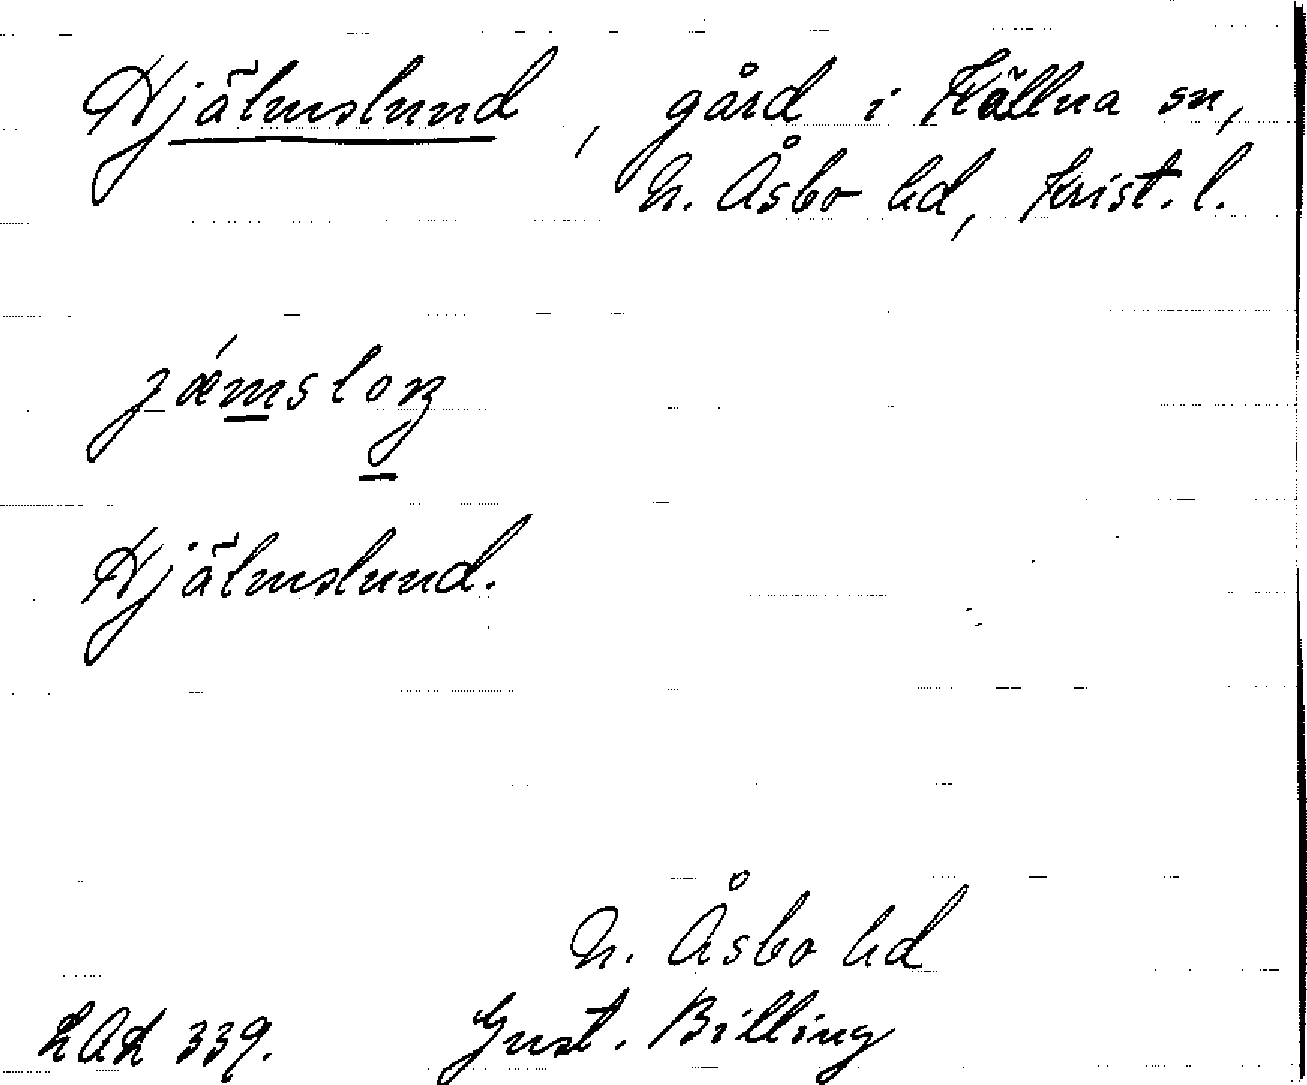 Hjälmslund, gård i Källna sn,
N. Åsbo hd, Krist. l.
Hjälmslund.
N. Åsbo hd
LAL 339. Gust. Billing